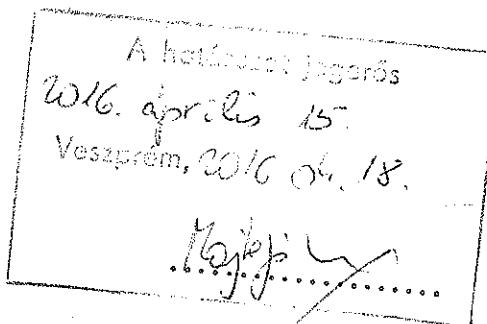 A határozat jogerős
2016. április 15.
Veszprém, 2016 04. 18.